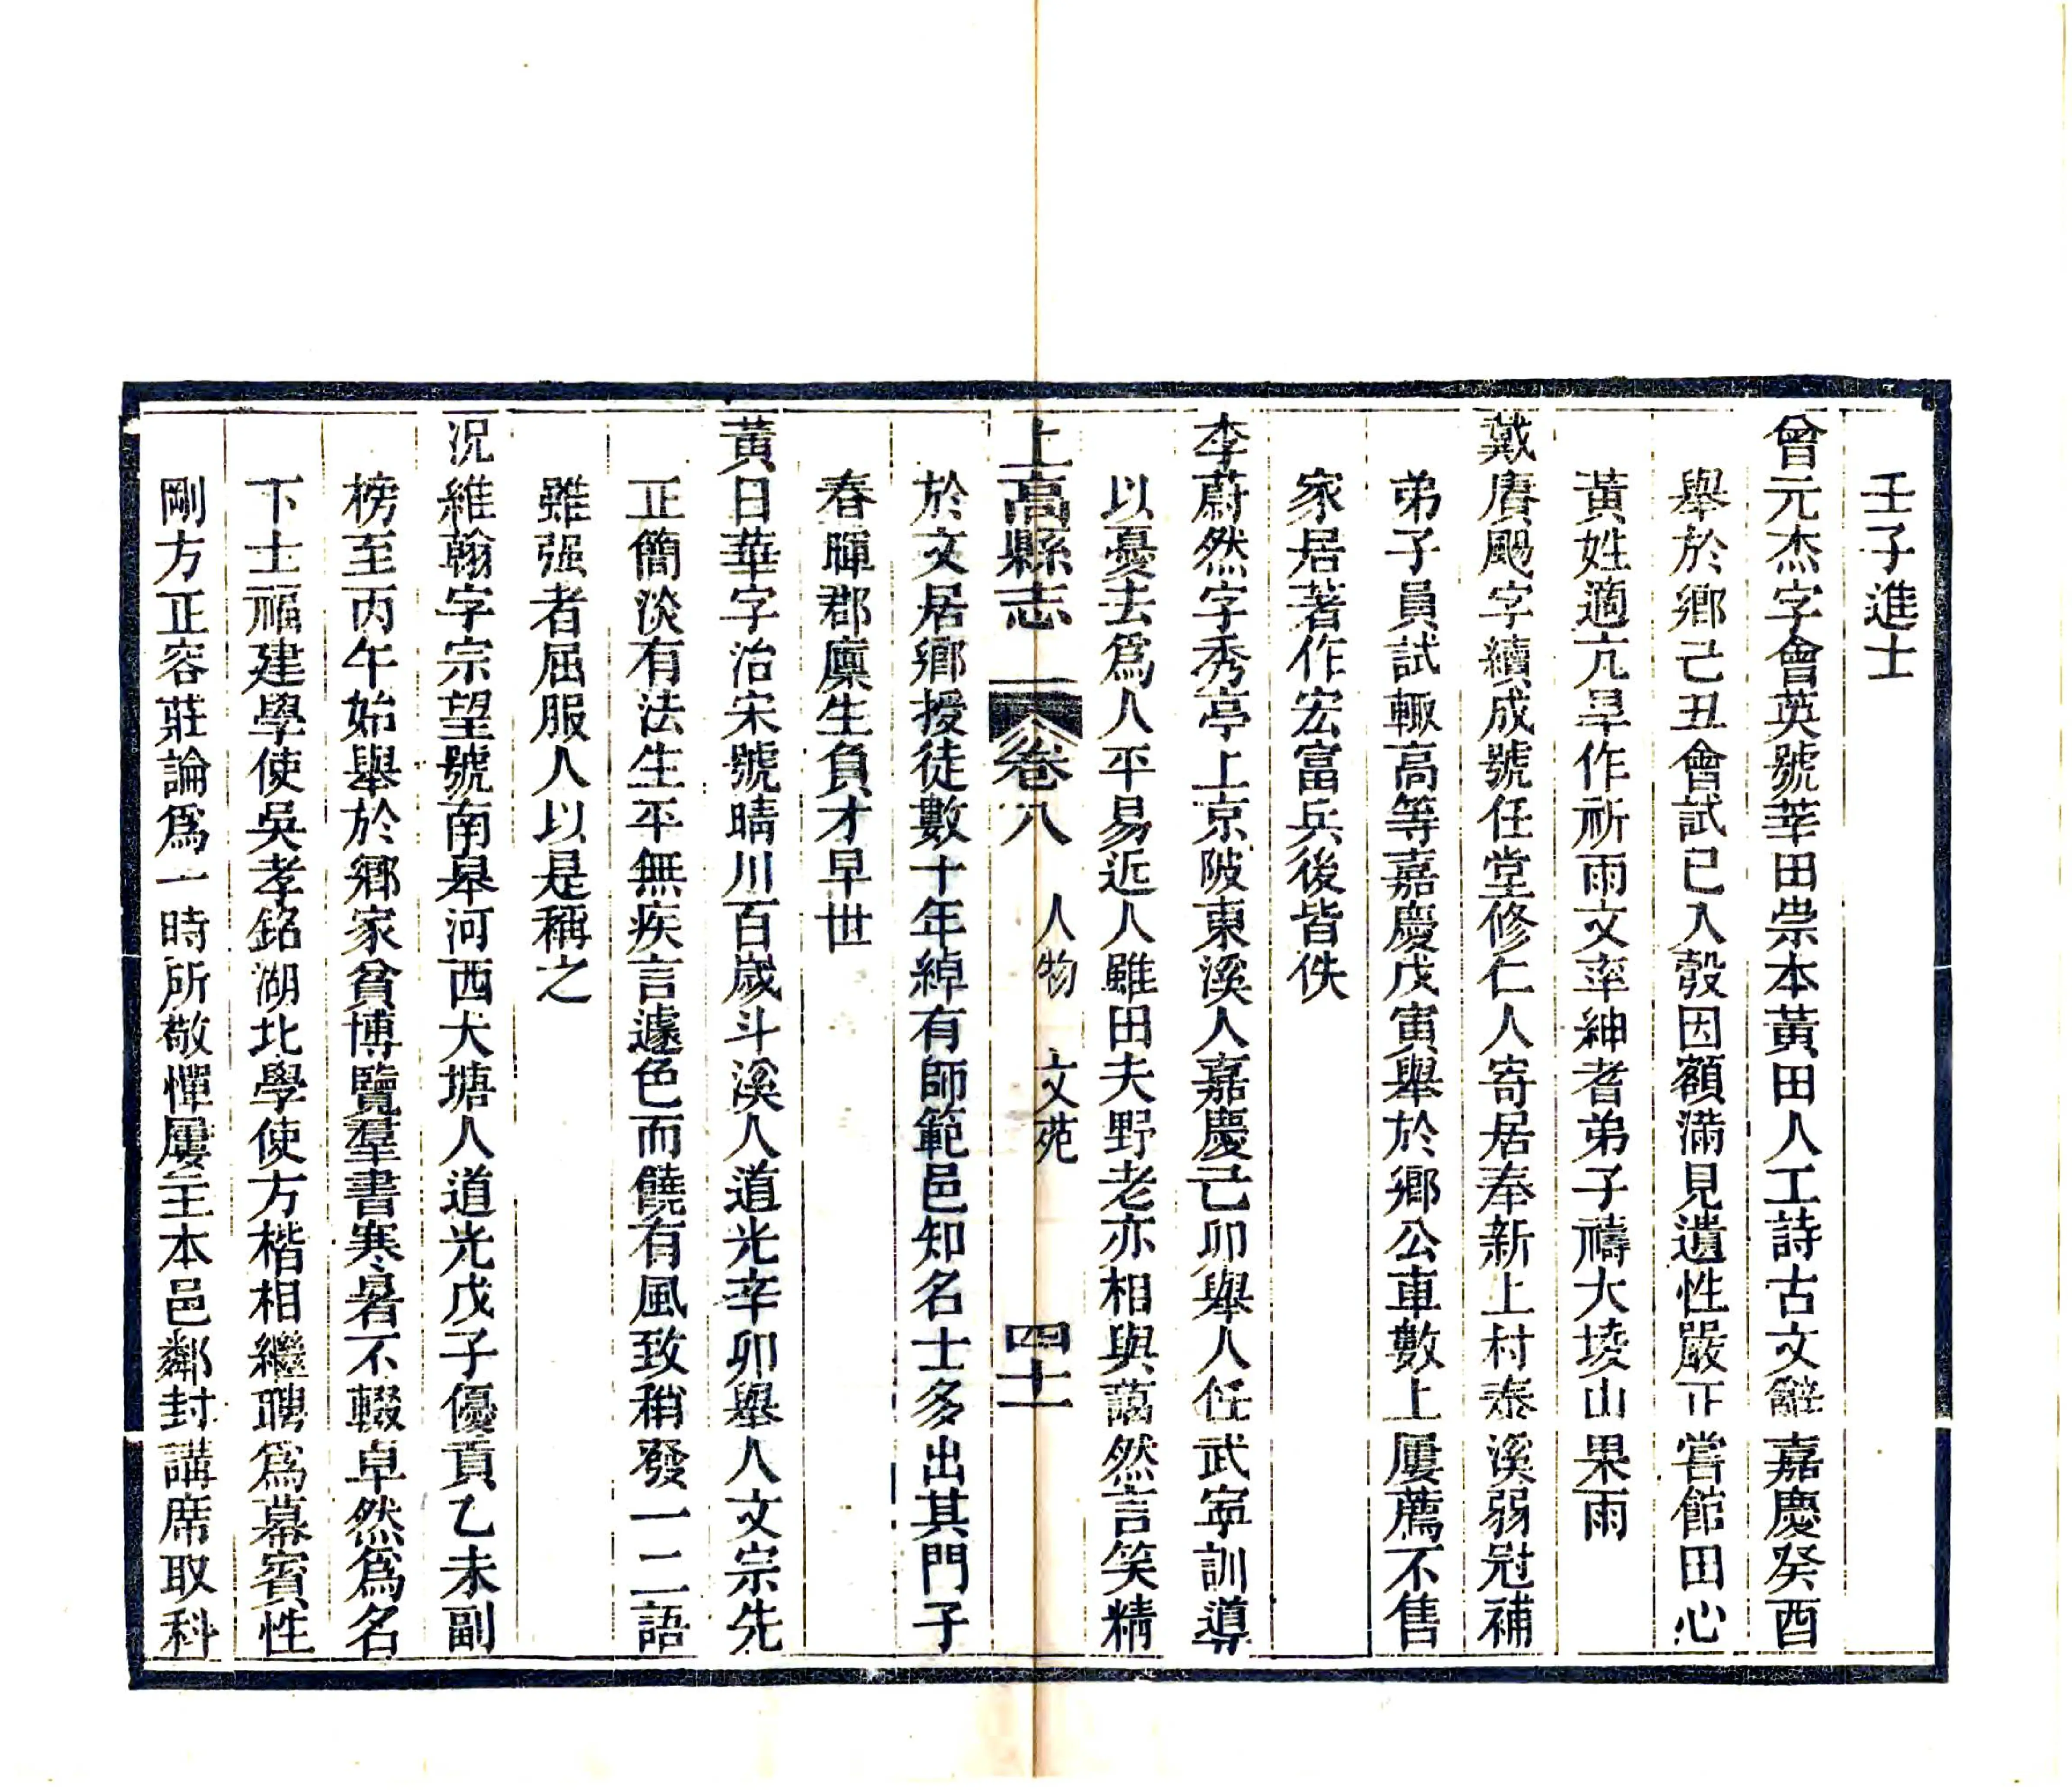 壬子進士
曾元杰字會英號莘田崇本黃田人工詩古文辭嘉慶癸酉
舉於鄉己丑會試已入彀因額滿見遺性嚴正嘗館田心
黃姓適亢旱作祈雨文率紳耆弟子禱大堎山果雨
戴賡颺字續成號任堂修仁人寄居奉新上村泰溪弱冠補
弟子員試輒高等嘉慶戊寅舉於鄉公車數上屢薦不售
家居著作宏富兵後皆佚
李蔚然字秀亭上京陂東溪人嘉慶己卯舉人任武寧訓導
以憂去爲人平易近人雖田夫野老亦相與藹然言笑精
上高縣志 卷八 人物 文苑 四十一
於文居鄉授徒數十年綽有師範邑知名士多出其門子
春暉郡廩生負才早世
黃日華字治宋號晴川百歲斗溪人道光辛卯舉人文宗先
正簡淡有法生平無疾言遽色而饒有風致稍發一二語
雖强者屈服人以是稱之
況維翰字宗望號南皋河西犬塘人道光戊子優貢乙未副
榜至丙午始舉於鄉家貧博覽羣書寒暑不輟卓然爲名
下士福建學使吳孝銘湖北學使方楷相繼聘爲幕賓性
剛方正容莊論爲一時所敬憚屢主本邑鄰封講席取科